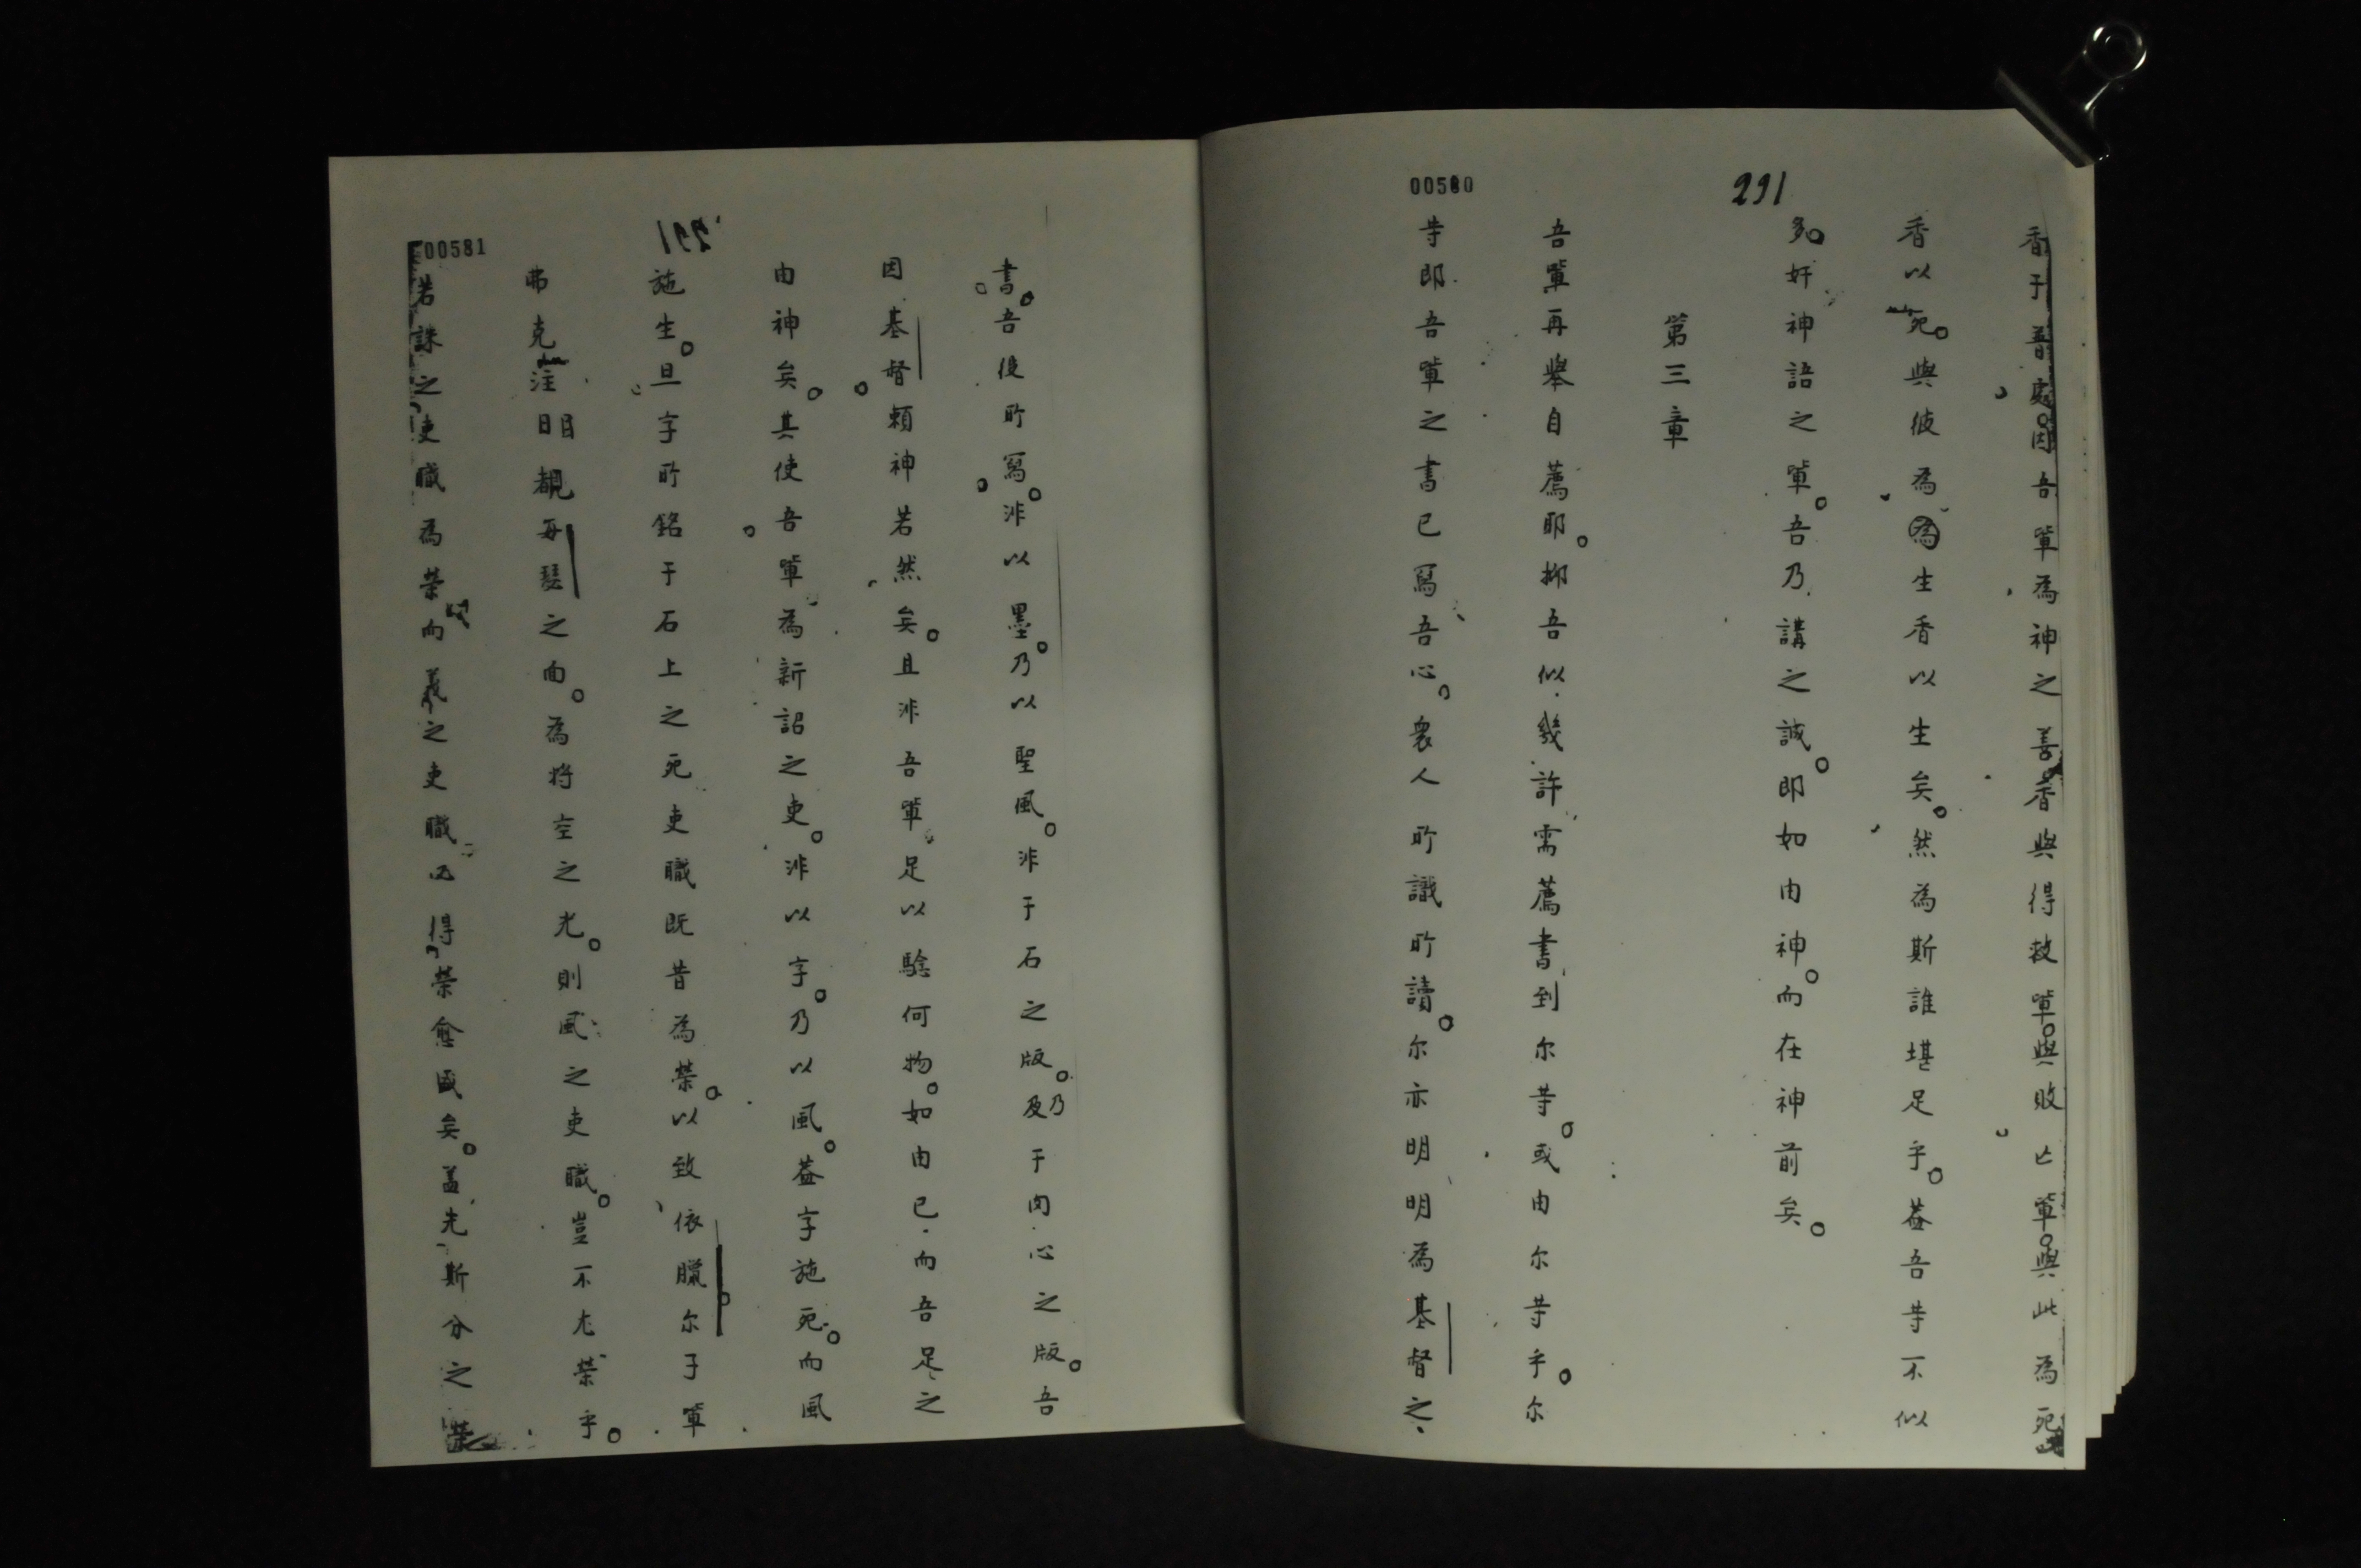 00580
291
香于普處。因吾軰為神之善香與得救軰。與敗亡軰。與此為死
香以死。與彼為為生香以生矣。然為斯誰堪足乎。蓋吾等不似
多。奸神語之軰。吾乃講之誠。即如由神。而在神前矣。
第三章
吾軰再舉自薦耶。抑吾似幾許需薦書到尔等。或由尔等乎。尔
等即吾軰之書已寫吾心。衆人所識所讀。尔亦明明為基督之
書。吾役所寫。非以墨。乃以聖風。非于石之版。及乃于肉心之版。吾
因基督賴神若然矣。且非吾軰足以騐何物。如由已而吾足之
由神矣。其使吾軰為新詔之吏。非以字。乃以風。蓋字施死。而風
施生。旦字所銘于石上之死吏職既昔為榮。以致依臘尔子軰
弗克注目睹每瑟之面。為將空之光。則風之吏職。豈不尤榮乎。
若誅之吏職為榮而義之吏職得榮愈盛矣。蓋先斯分之榮
00581
291